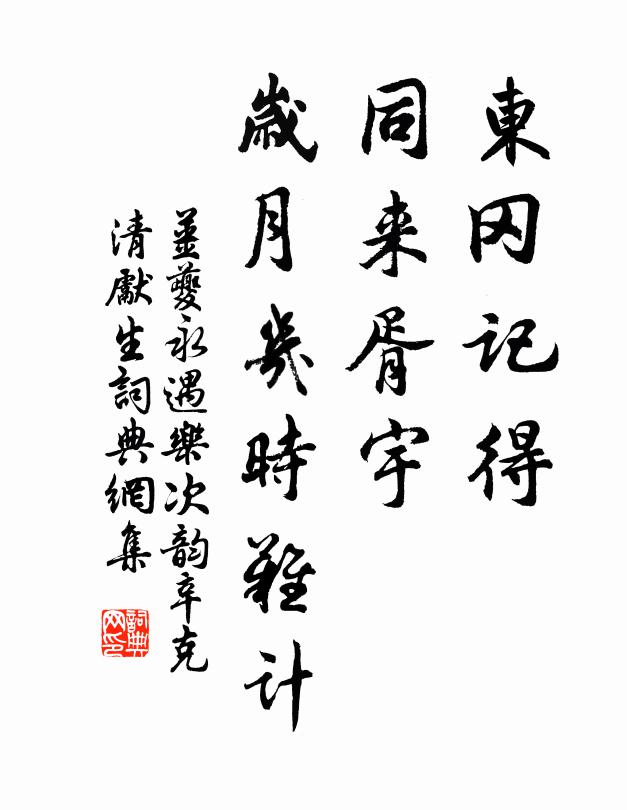 東冈記得
同来胥宇
歳月幾時難計
姜夔永遇樂次韵辛克
清獻生詞典網集
詞典网印